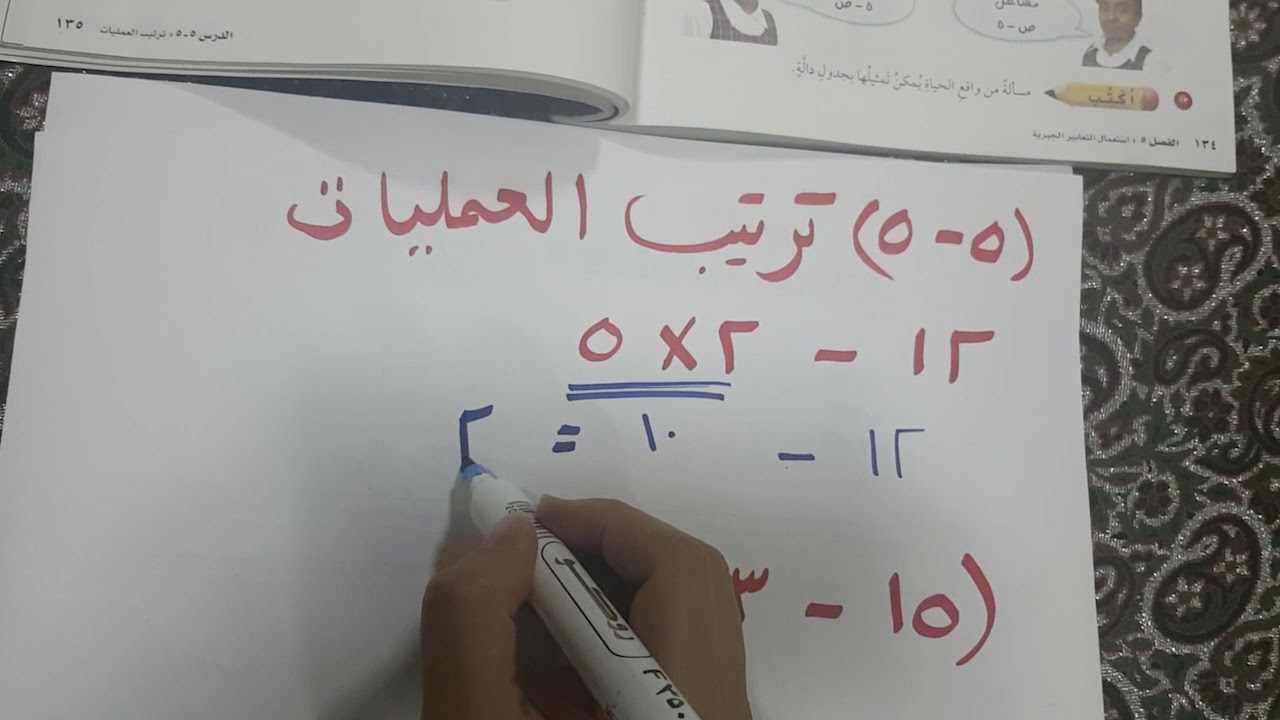 ٥ - ص
مشاعل
ص - ٥
اكتُب مسألةً من واقعِ الحياةِ يُمكنُ تَمثيلُها بجدولِ دالَّةٍ.
١٣٤ الفصل ٥ : استعمال التعابير الجبرية
الدرس ٥-٥ : ترتيب العمليات ١٣٥
(٥-٥) ترتيب العمليات
١٢ - ٢ × ٥
١٢ - ١٠ = ٢
(١٥ - ٣
روكو
F٢٥٠